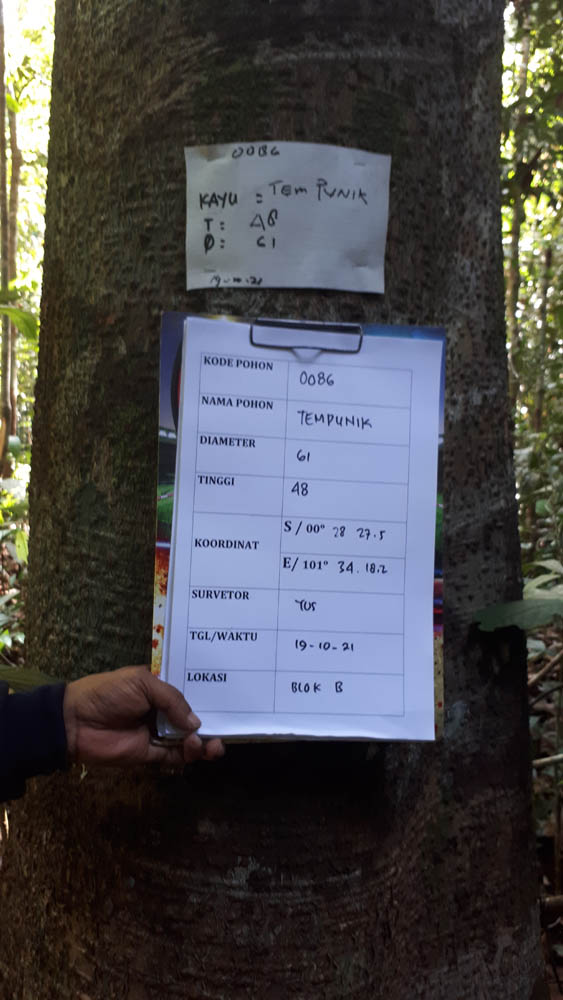 0086
KAYU : TEMPUNIK
T : 48
Ø : 61
19-10-21
KODE POHON 0086
NAMA POHON TEMPUNIK
DIAMETER 61
TINGGI 48
KOORDINAT S / 00° 28 27.5
E/ 101° 34.18.2
SURVETOR YUS
TGL/WAKTU 19-10-21
LOKASI BLOK B